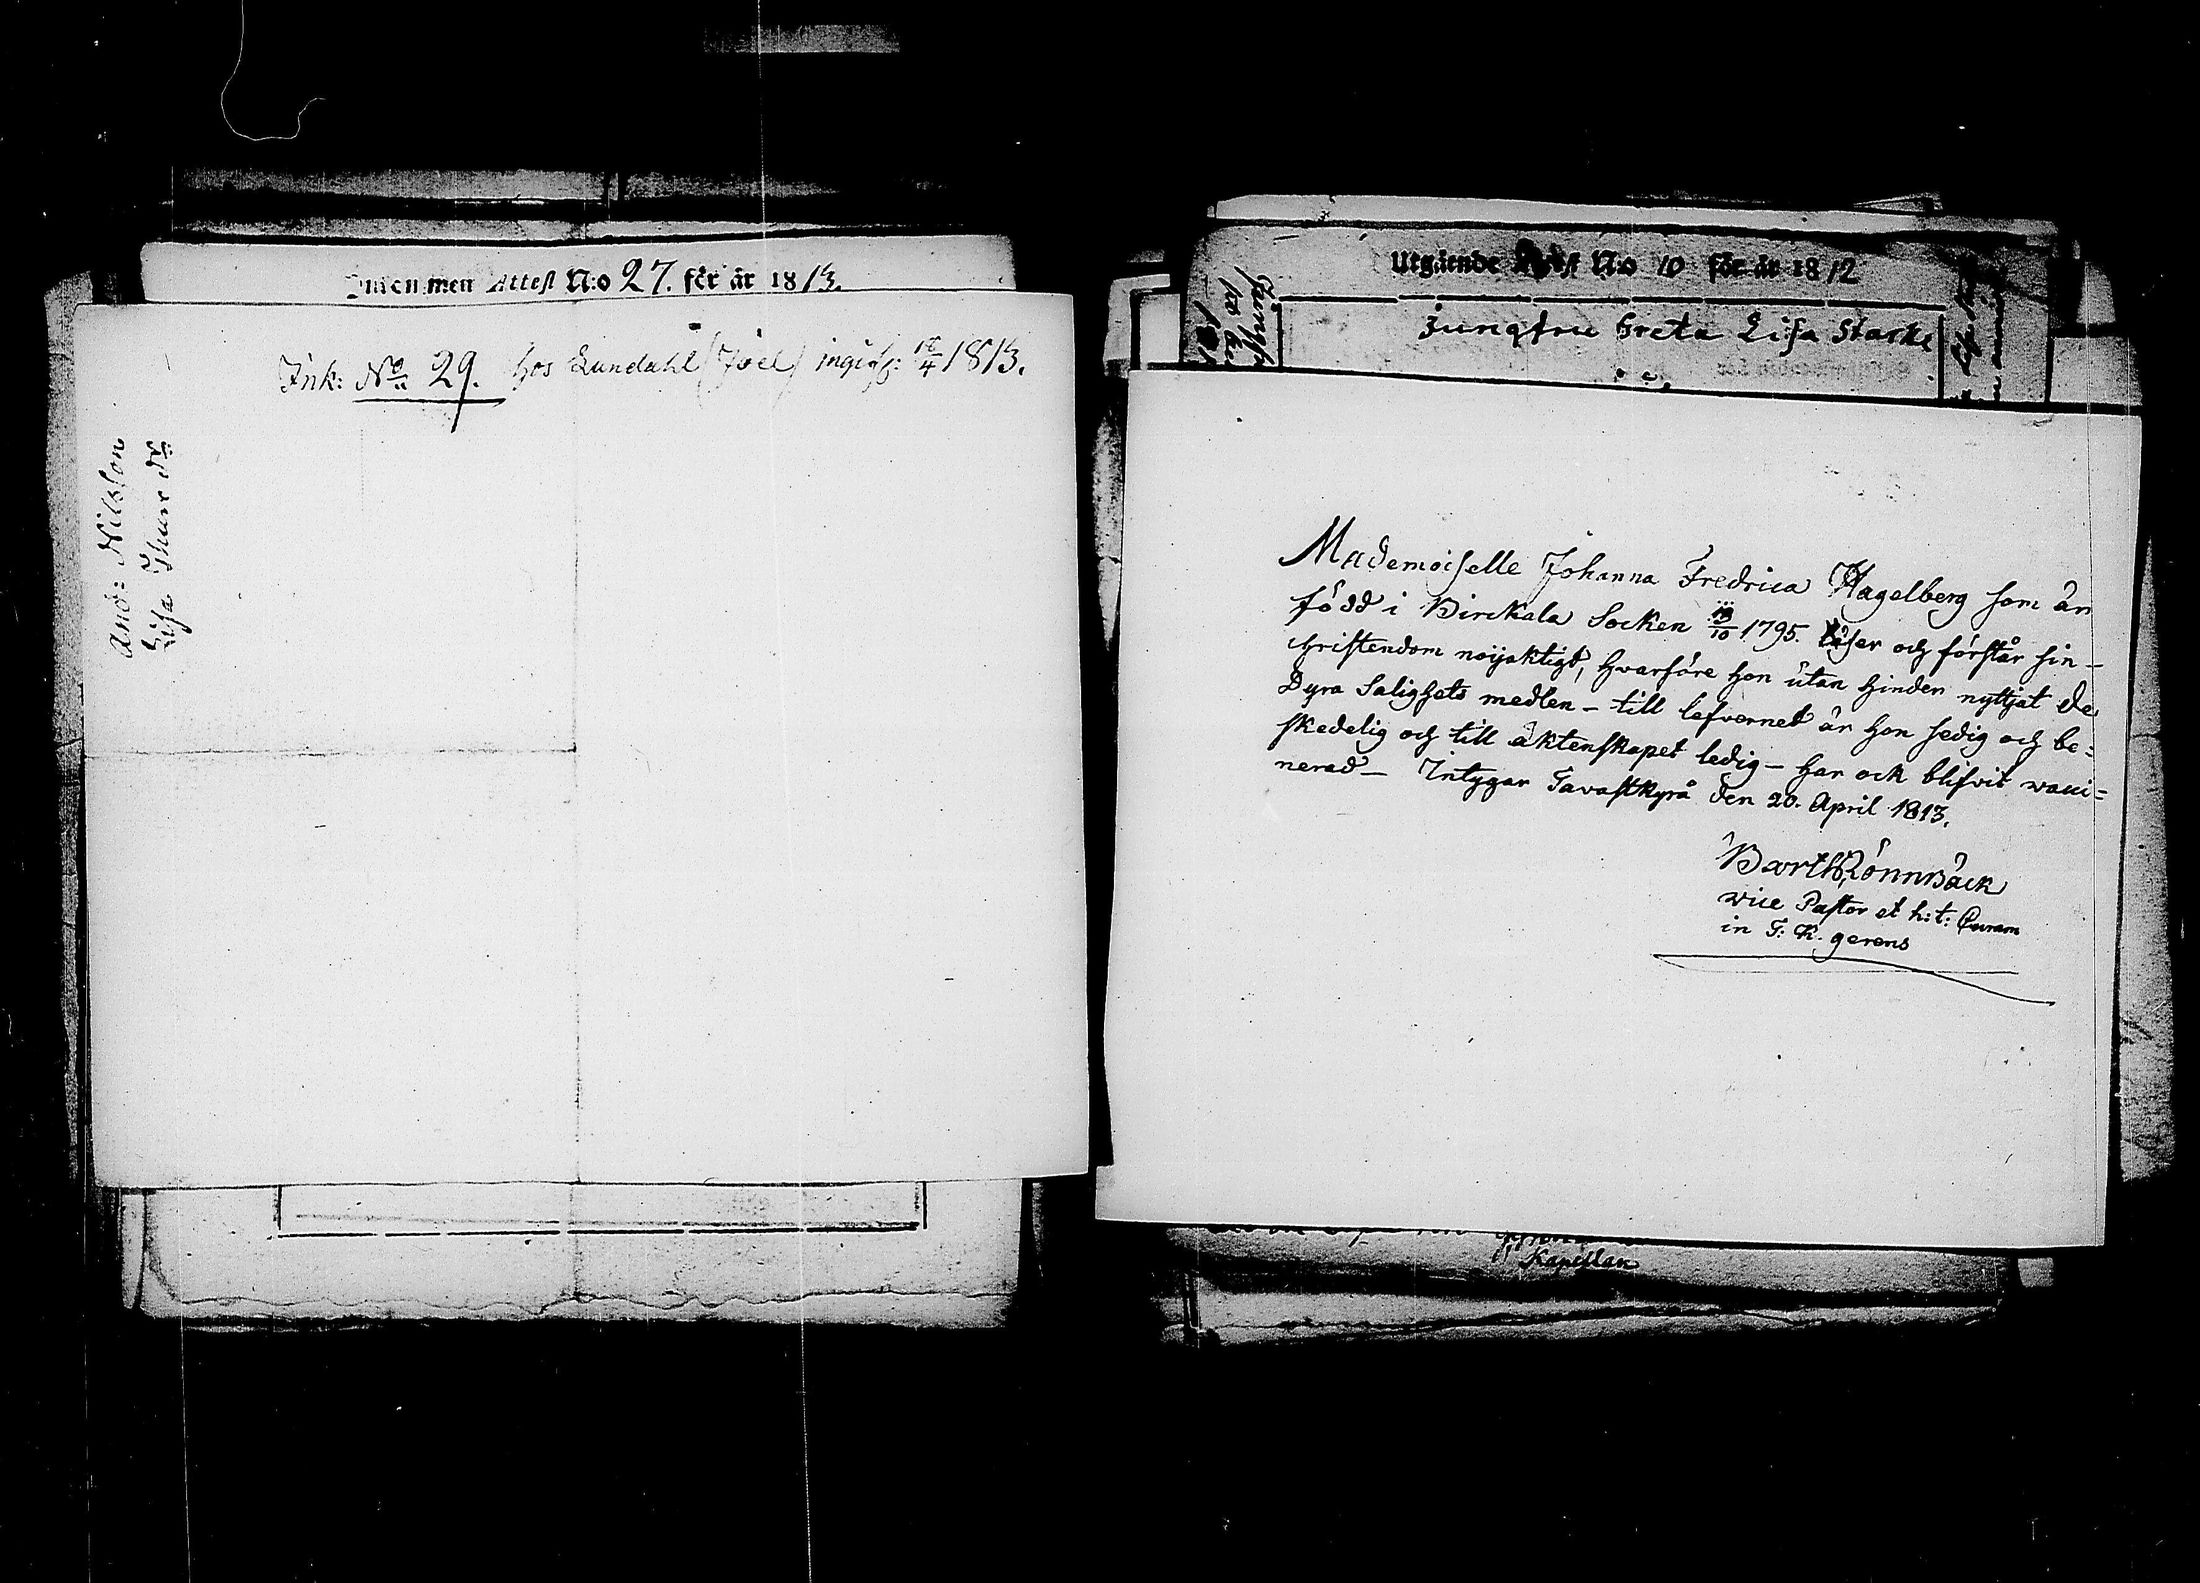 Attest N:o 27. för år 1813.
Ink: No 29. hos Lundahl (Joel) ingifv: 18/4 1813.
And: Nilsson
Lisa Thure dr
Utgående Attest N:o 10 för år 1812
Jungfru Greta Lisa Starke
Mademoiselle Johanna Fredrica Hagelberg som är
född i Birckala Socken 1795. läser och förstår sin
christendom nöijaktigt, hvarföre hon utan hinder nyttjat de
Dyra Salighets medlen – till lefvernet är hon sedig och be=
skedelig och till äktenskapet ledig – har ock blifvit vacci=
nerad – Intygar Tavastkyrå den 20. April 1813.
Barth Rönnbäck
vice Pastor et h: t: Curam
in T: K. gerens
Kapellan